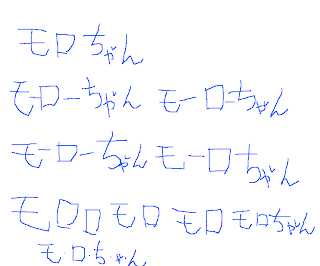 モロちゃん
モローちゃん モーローちゃん
モーローちゃん モーロちゃん
モロロ モロ モロ モロちゃん
モ・ロ・ち・ゃ・ん